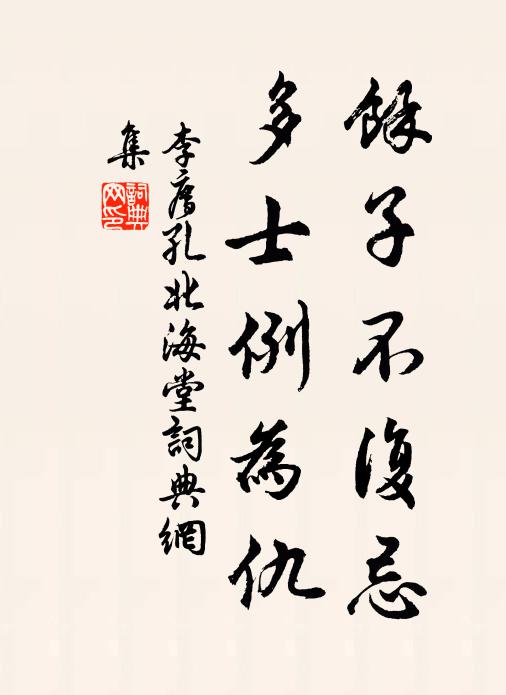 餘子不復忌
多士例為仇
李廌孔北海堂詞典網
集
詞典網印